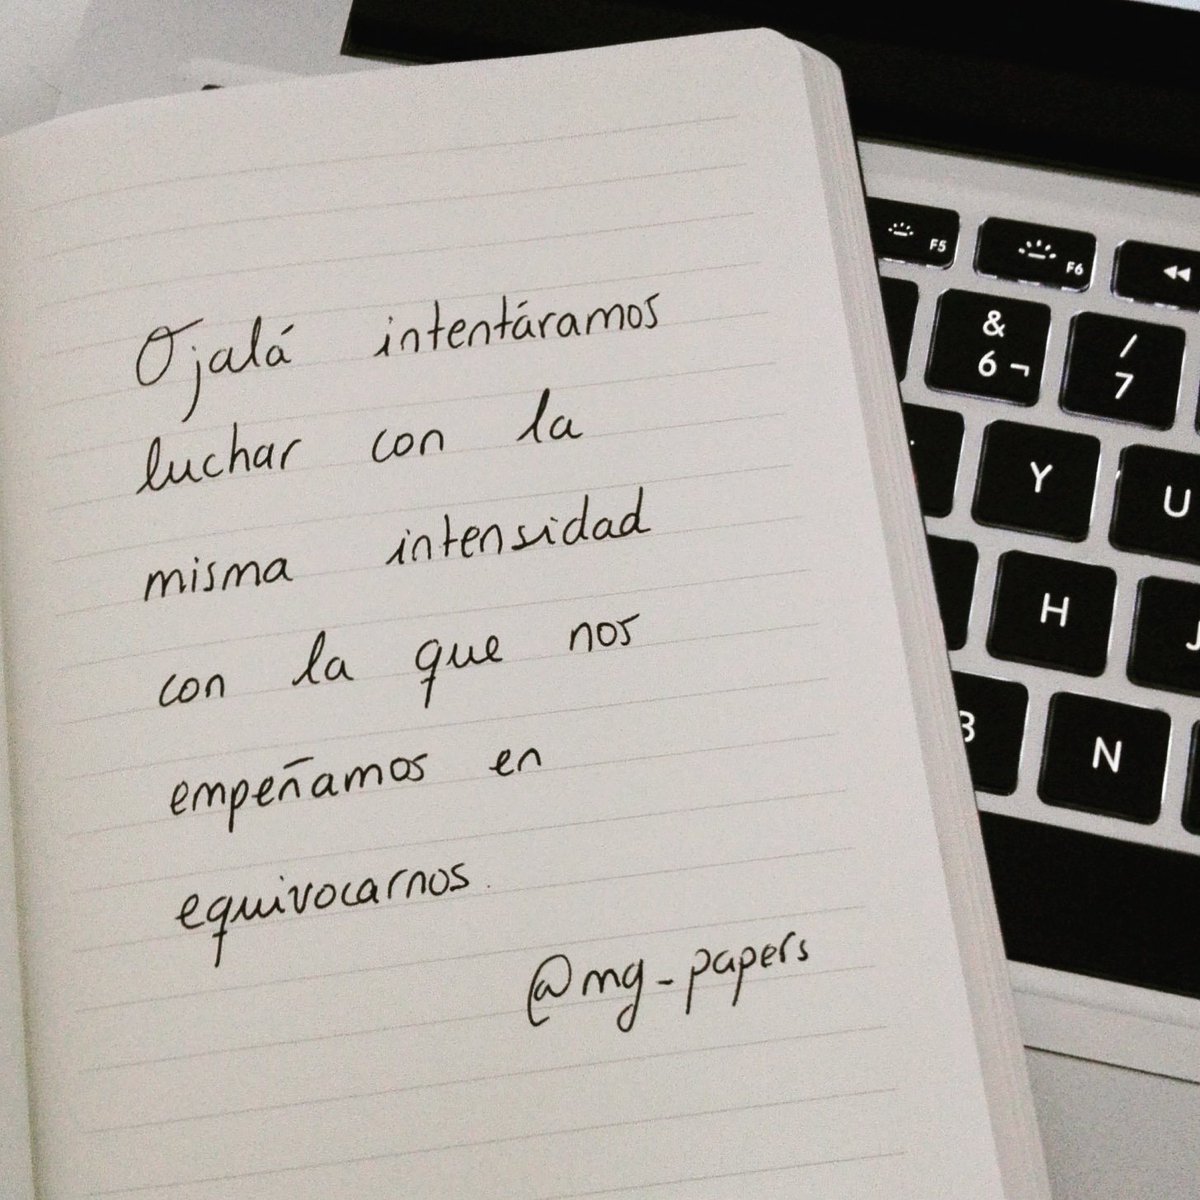 Ojalá intentáramos
luchar con la
misma intensidad
con la que nos
empeñamos en
equivocarnos.
@mg_papers
F5
F6
&
6 ¬
/
7
Y
U
H
J
B
N